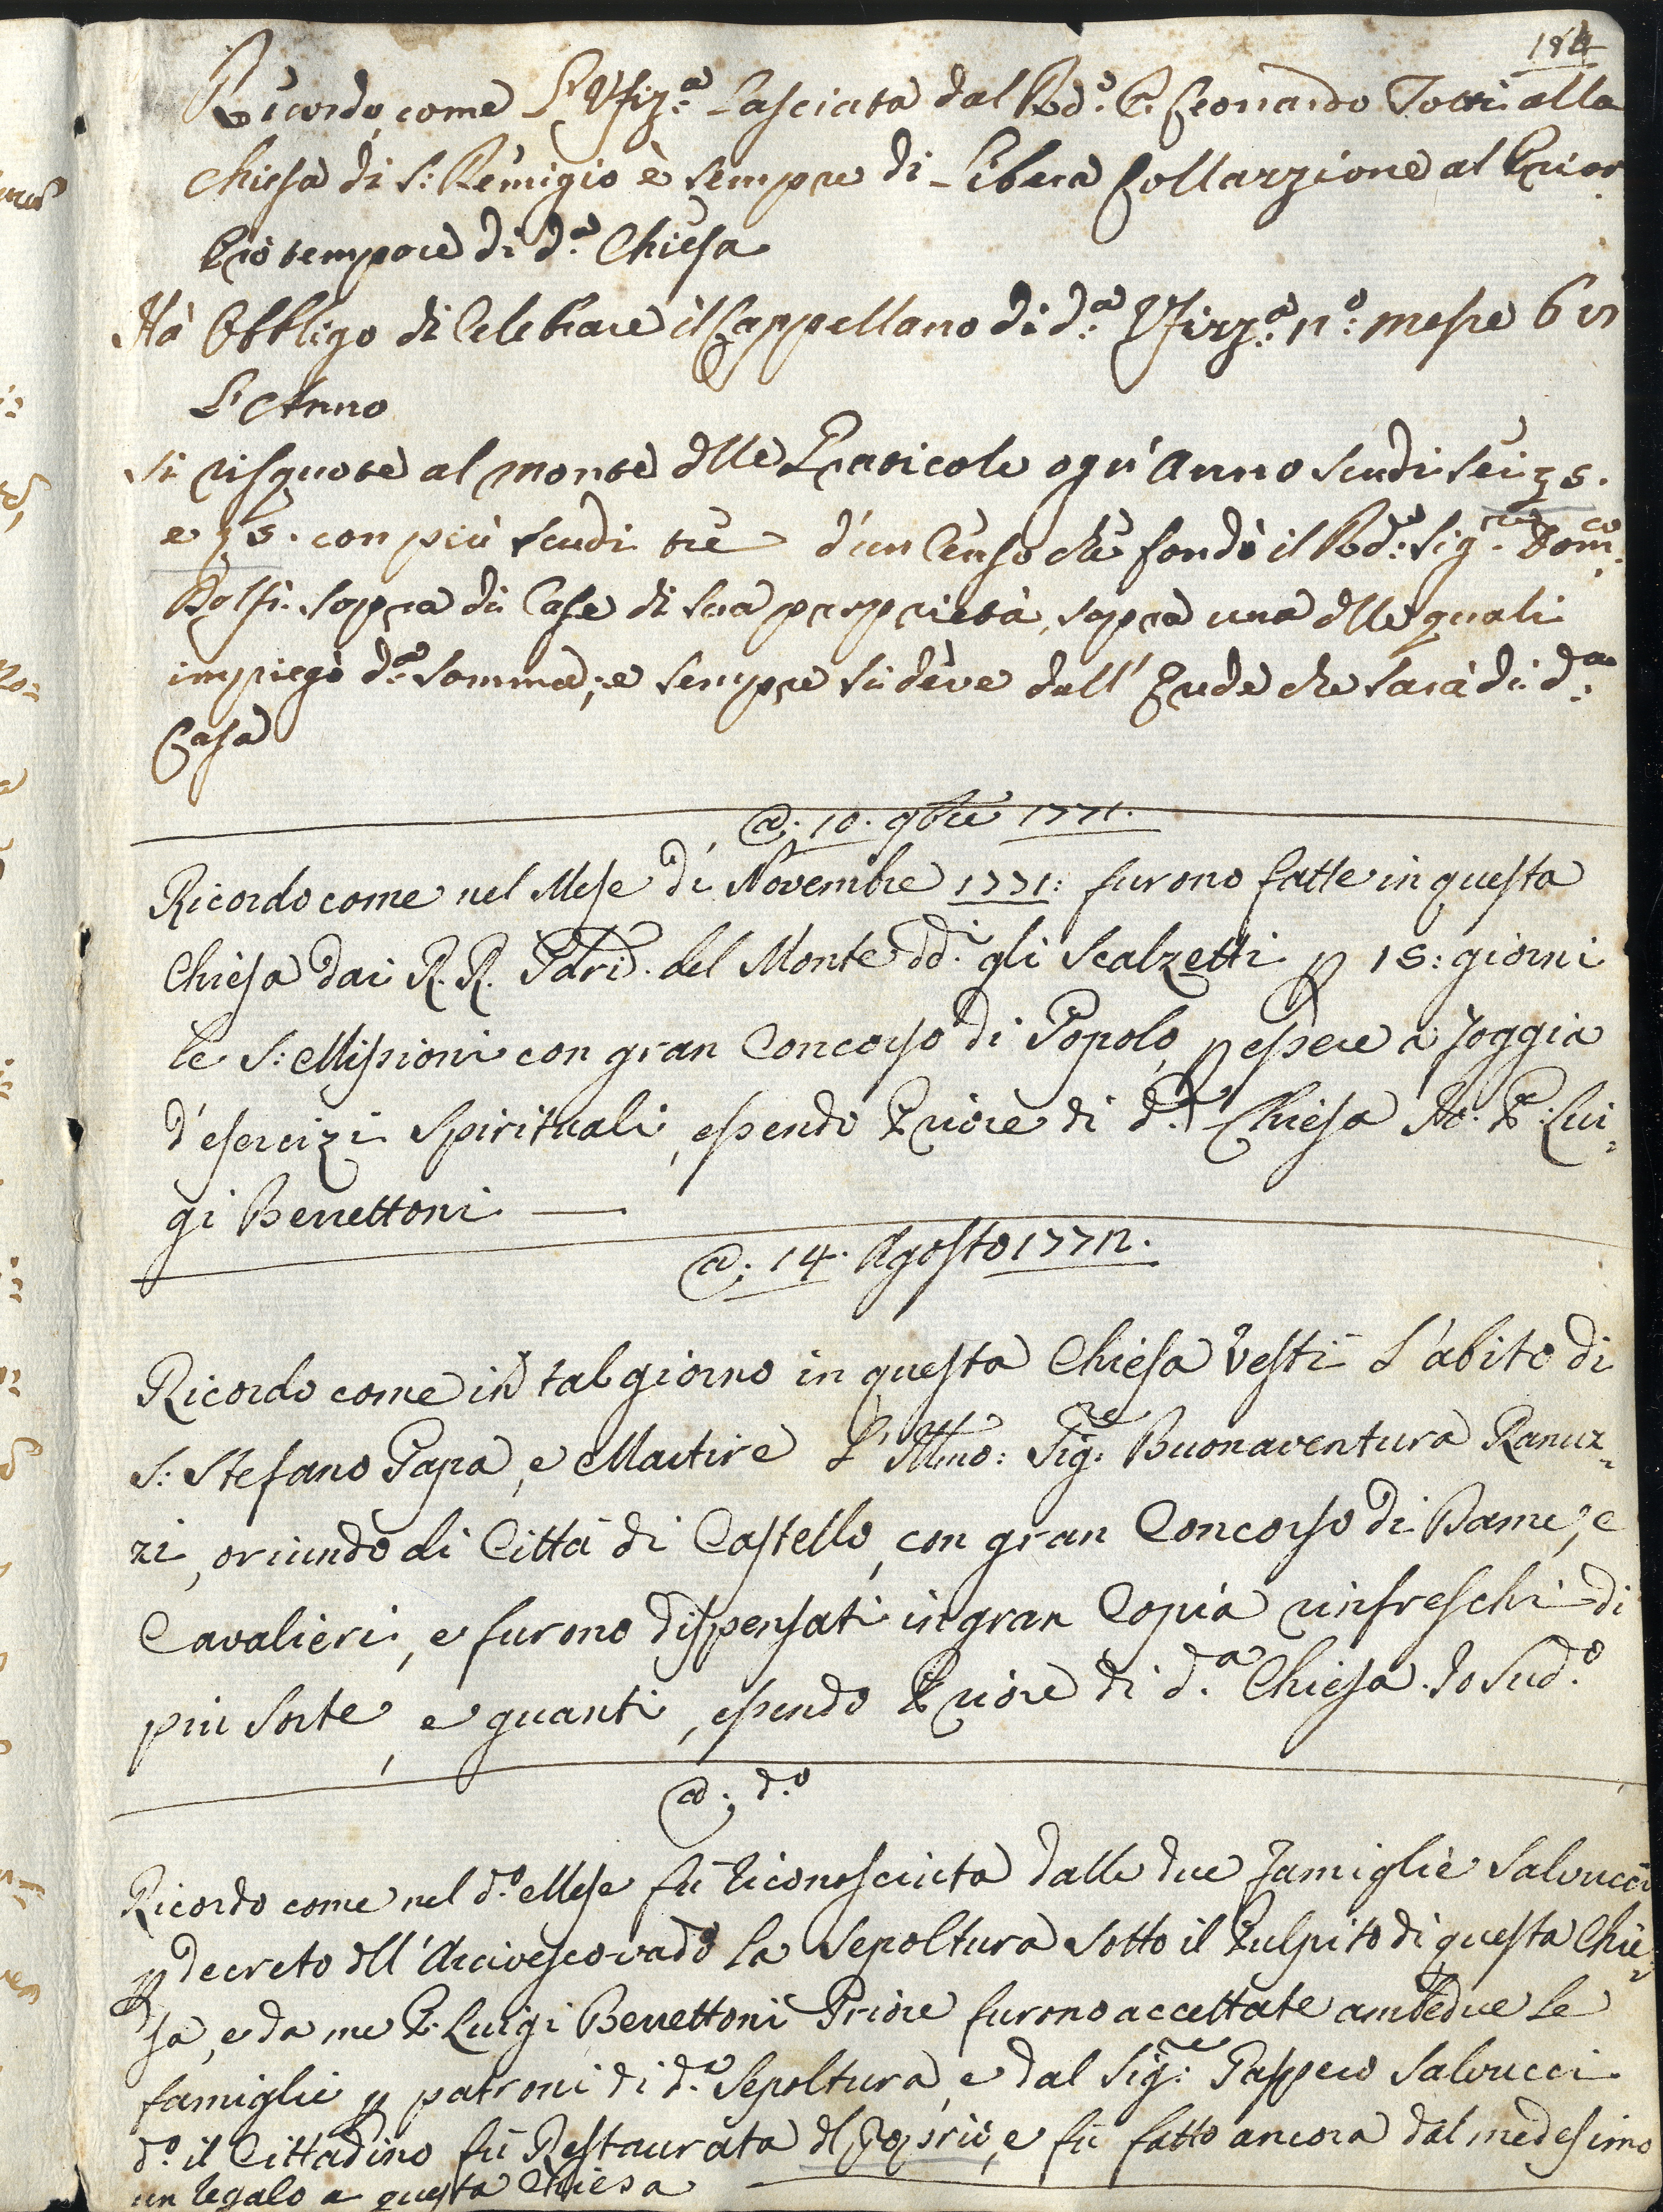 184
Ricordo come L'Ufiz.ª Lasciata dal Rdo: P. Leonardo Totti alla
Chiesa di S: Remigio è sempre di Libera Collarzione al Prior
Prò tempore di d.ª Chiesa
Hà Obbligo di Celebrare il Cappellano di d.ª Ufizz.ª n.º messe 6 in
L'Anno
Si risquote al monte dlle Graticole ogn'Anno scudi sei
e con più scudi trè d'un Censo che fondò il Rdo: Sig.re Dom.co
Dolfi sopra di Case di sua proprietà, sopra una dlle quali
impiegò d.ª somma; e sempre si deve dall' Erede che sarà di d.ª
Casa
@: 10. 9bre 1771.
Ricordo come nel Mese di Novembre 1771: furono fatte in questa
Chiesa dai R.R. Pdri. del Monte dd.i gli Scalzetti p 15: giorni
le S: Missioni con gran Concorso di Popolo p essere a foggia
d'esercizi Spirituali, essendo Priore di d.ª Chiesa Io: P: Lui=
gi Benettoni —
@: 14. Agosto 1772.
Ricordo come in tal giorno in questa Chiesa vestì L'abito di
S: Stefano Papa, e Martire L'Illmo: Sig.re Buonaventura Ranuz=
zi, oriundo di Città di Castello, con gran Concorso di Dame, e
Cavalieri, e furono dispensati in gran Copia rinfreschi di
più sorte, e guanti, essendo Priore di d.ª Chiesa Io Sud.º
@: d.º
Ricordo come nel d.º Mese fù riconosciuta dalle due famiglie Salvucci
p decreto dll'Arcivescovado la Sepoltura sotto il Pulpito di questa Chie=
sa, e da me P. Luigi Benettoni Priore furono accettate ambedue le
famiglie p patroni di d.ª Sepoltura, e dal Sig.re Gaspero Salvucci
d.º il Cittadino fù Restaurata dl proprio, e fù fatto ancora dal medesimo
un regalo a questa Chiesa